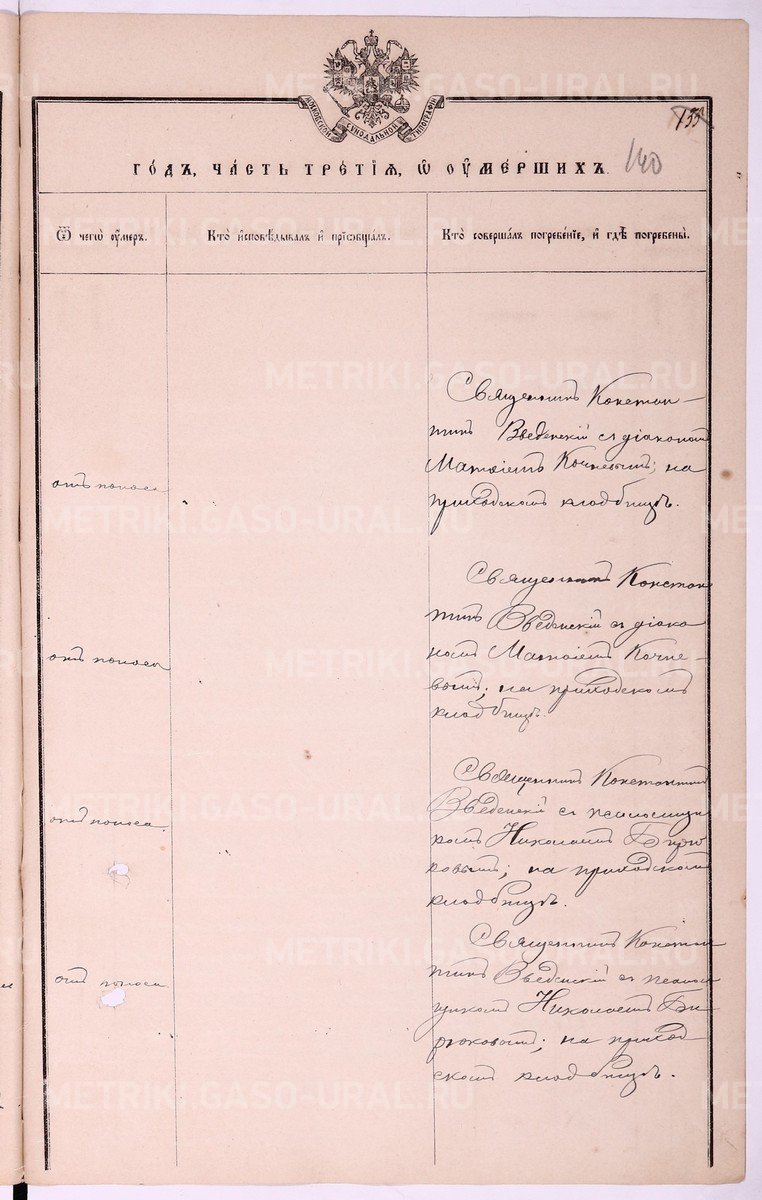 МОСКОВСКОЙ СѴНОДАЛЬНОЙ ТИПОГРАФІИ
133
140
ГОДЪ, ЧАСТЬ ТРЕТІЯ, Ѡ ОУМЕРШИХЪ.
Ѿ чегѡ оумеръ.
Кто исповѣдывалъ и пріобщалъ.
Кто совершалъ погребеніе, и гдѣ погребены.
Священникъ Констан-
тинъ Введенскій съ діакономъ
Матѳіемъ Кочневымъ; на
приходскомъ кладбищѣ.
отъ поноса
Священникъ Констан
тинъ Введенскій съ діако
номъ Матѳіемъ Кочне-
вымъ; на приходскомъ
кладбищѣ.
отъ поноса
Священникъ Константинъ
Введенскій съ псаломщи
комъ Николаемъ Бирю
ковымъ; на приходскомъ
кладбищѣ.
отъ поноса
Священникъ Констан
тинъ Введенскій съ псалом
щикомъ Николаемъ Би-
рюковымъ; на приход
скомъ кладбищѣ.
отъ поноса
METRIKI.GASO-URAL.RU